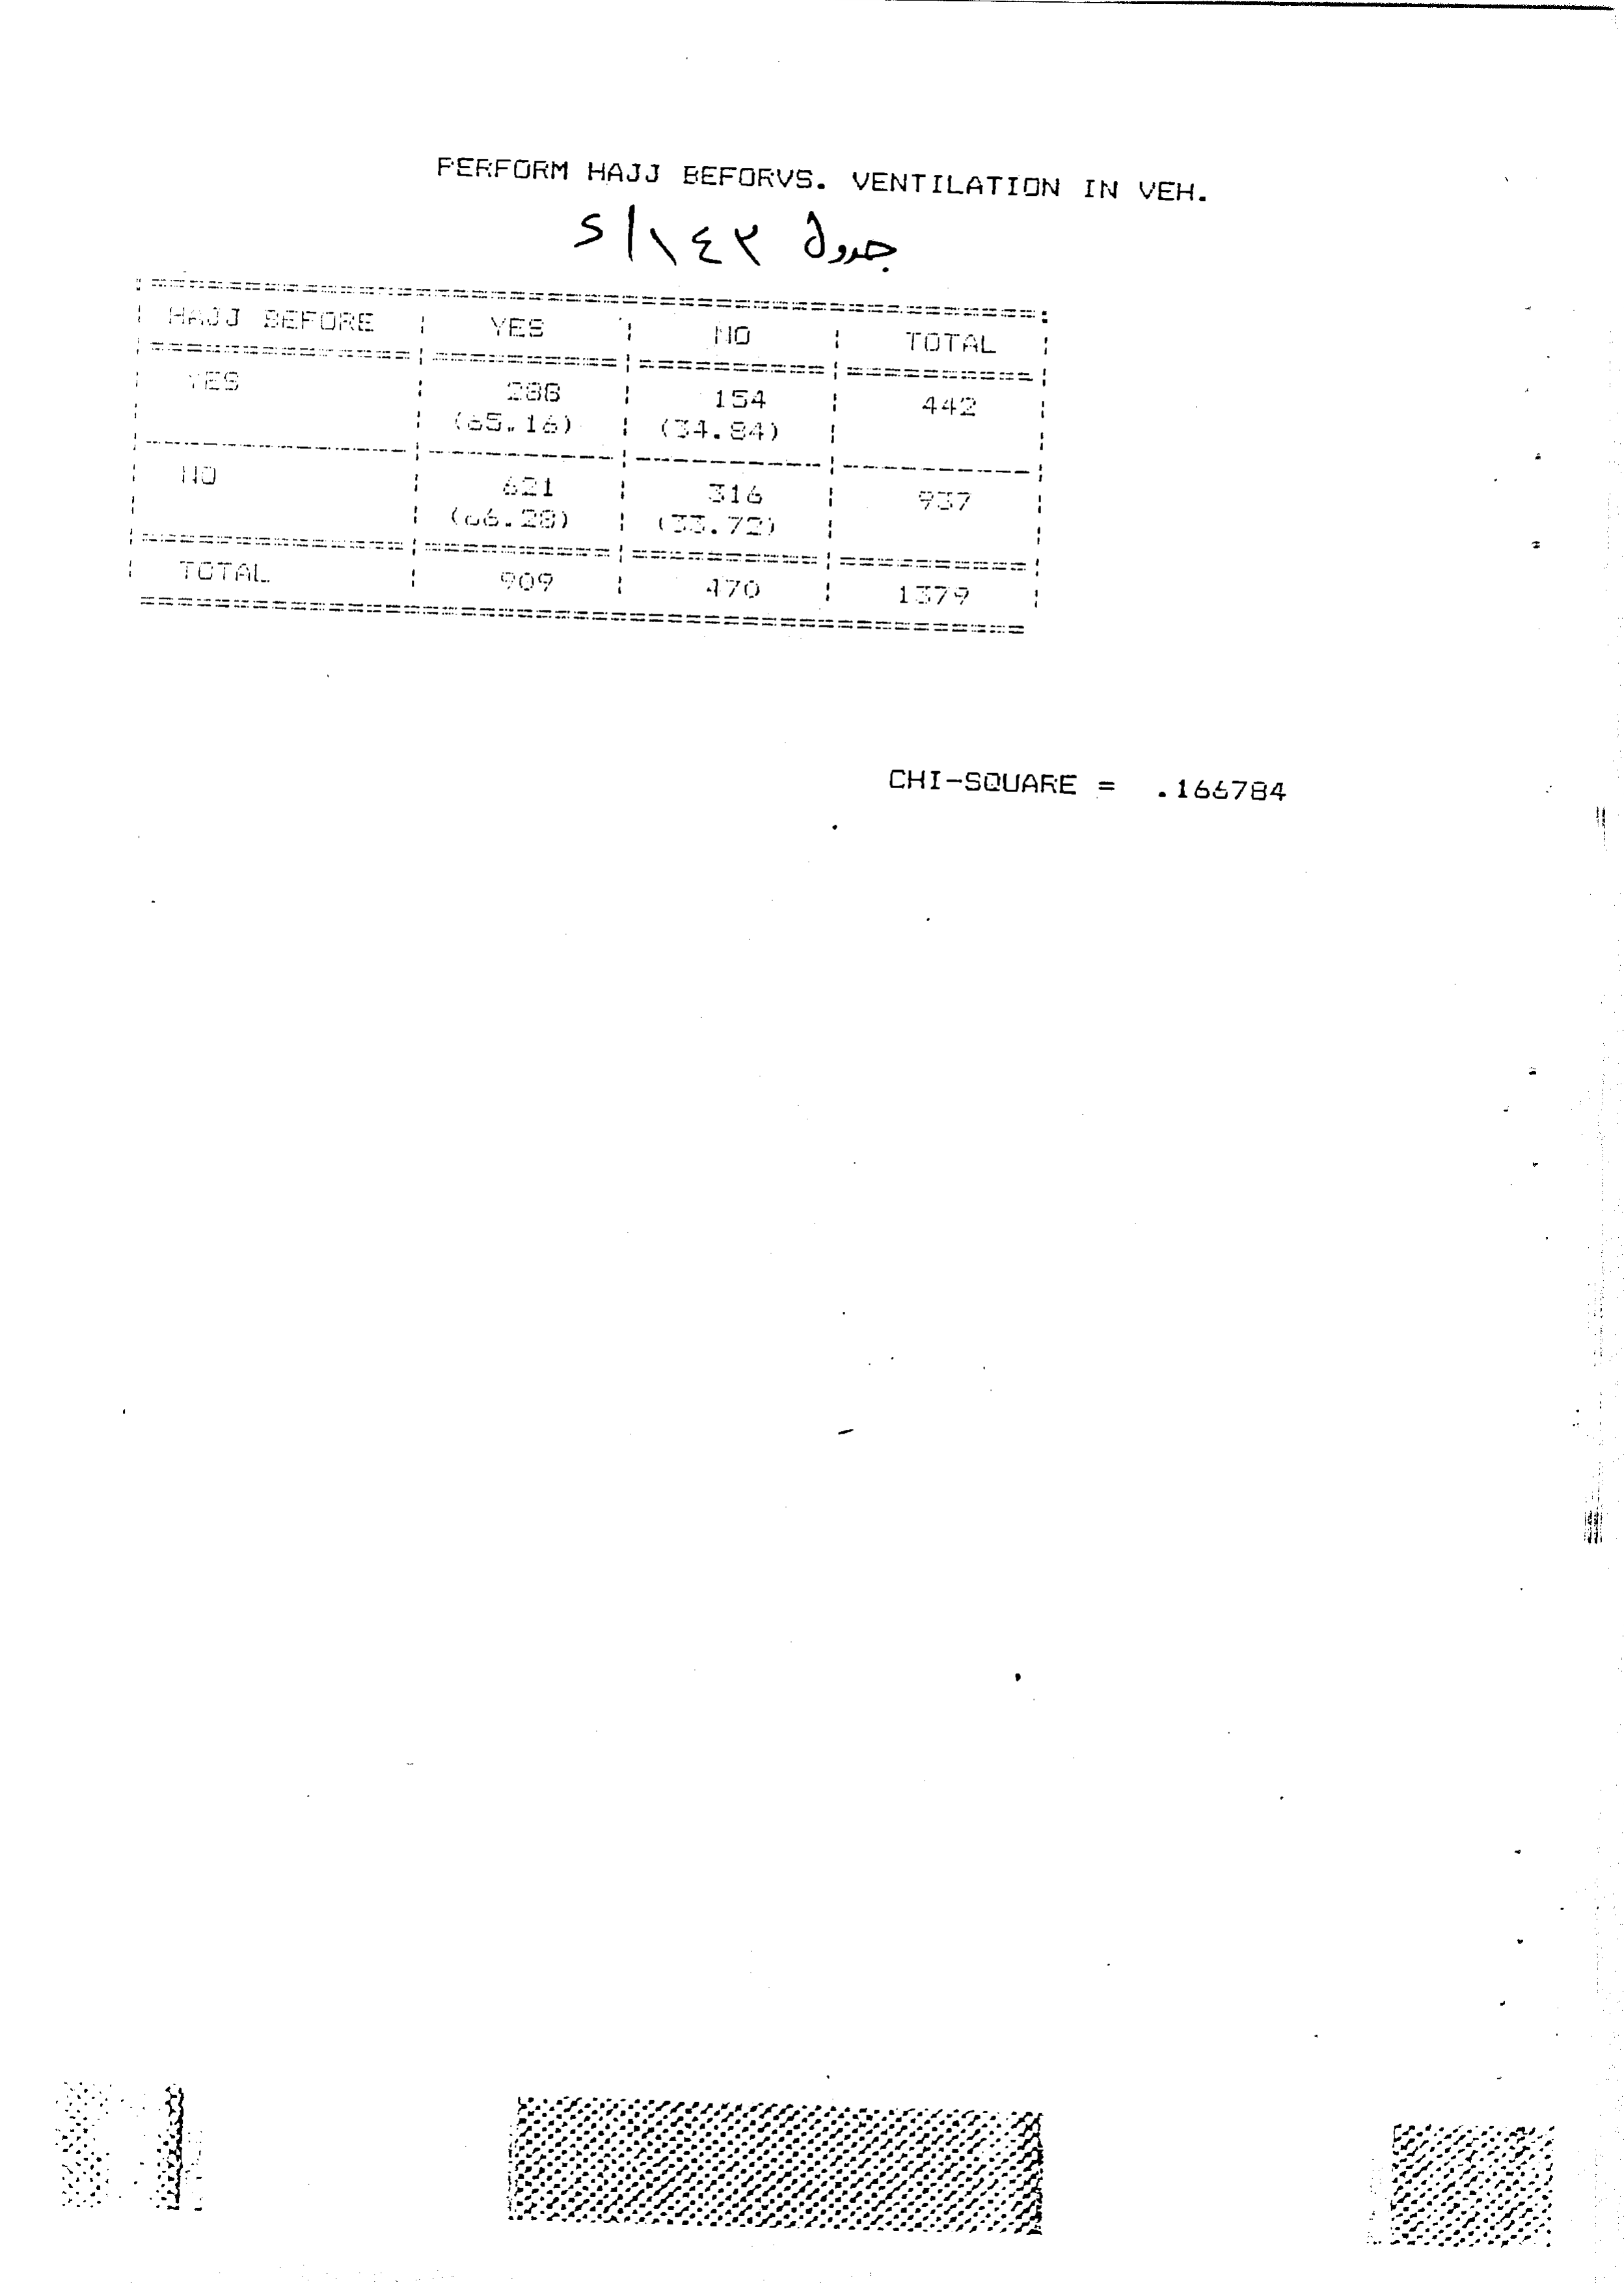 PERFORM HAJJ BEFORVS. VENTILATION IN VEH.
جدول ١٤٣/د
HAJJ BEFORE | YES | NO | TOTAL
YES | 288 | 154 | 442
(65.16) | (34.84)
NO | 621 | 316 | 937
(66.28) | (33.72)
TOTAL | 909 | 470 | 1379
CHI-SQUARE = .166784